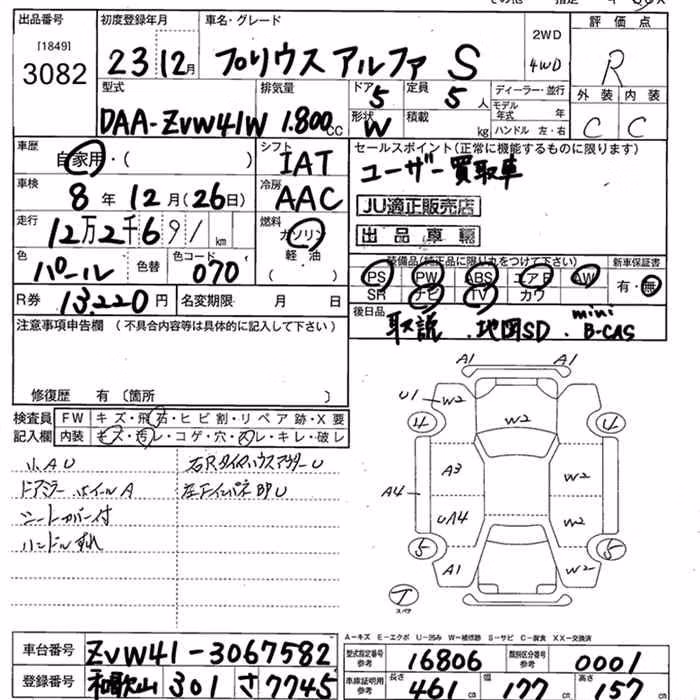 出品番号 初度登録年月 車名・グレード 2WD 評価点
[1849] 23 12月 プリウスアルファ S 4WD R
3082
型式 排気量 ドア 5 定員 5人 ディーラー・並行 外装 内装
DAA-ZVW41W 1.800cc 形状 W 積載 kg モデル年式 年 C C
ハンドル 左・右
車歴 自家用・( ) シフト IAT セールスポイント(正常に機能するものに限ります)
ユーザー買取車
車検 8年12月(26日) 冷房 AAC JU適正販売店
走行 12万2千691km 燃料 ガソリン 軽油 ( ) 出品車輌
色 パール 色替 色コード 070 装備品(純正品に限り丸をつけて下さい) 新車保証書
PS PW ABS エアB AW 有・無
SR ナビ TV カワ
R券 13.220円 名変期限 月 日 後日品 取説 . 地図SD . mini B-CAS
注意事項申告欄 (不具合内容等は具体的に記入して下さい)
修復歴 有〔箇所 〕
検査員 FW キズ・飛石・ヒビ割・リペア跡・X要
記入欄 内装 キズ・汚レ・コゲ・穴・スレ・キレ・破レ
小AU
ドアミラー ホイールA 左Fインパネ部U
シートカバー付
ハンドルすれ
A1 A1
U1 W2 W2
4 4
A3 W2
A4 UA4 W2
5 5
A1 W2
T
スペア
A-キズ E-エクボ U-凹み W-補修跡 S-サビ C-腐食 XX-交換済
車台番号 ZVW41-3067582 型式指定番号 参考 16806 類別区分番号 参考 0001
登録番号 和歌山 301 さ7745 車庫証明用 参考 長さ 461cm 幅 177cm 高さ 157cm